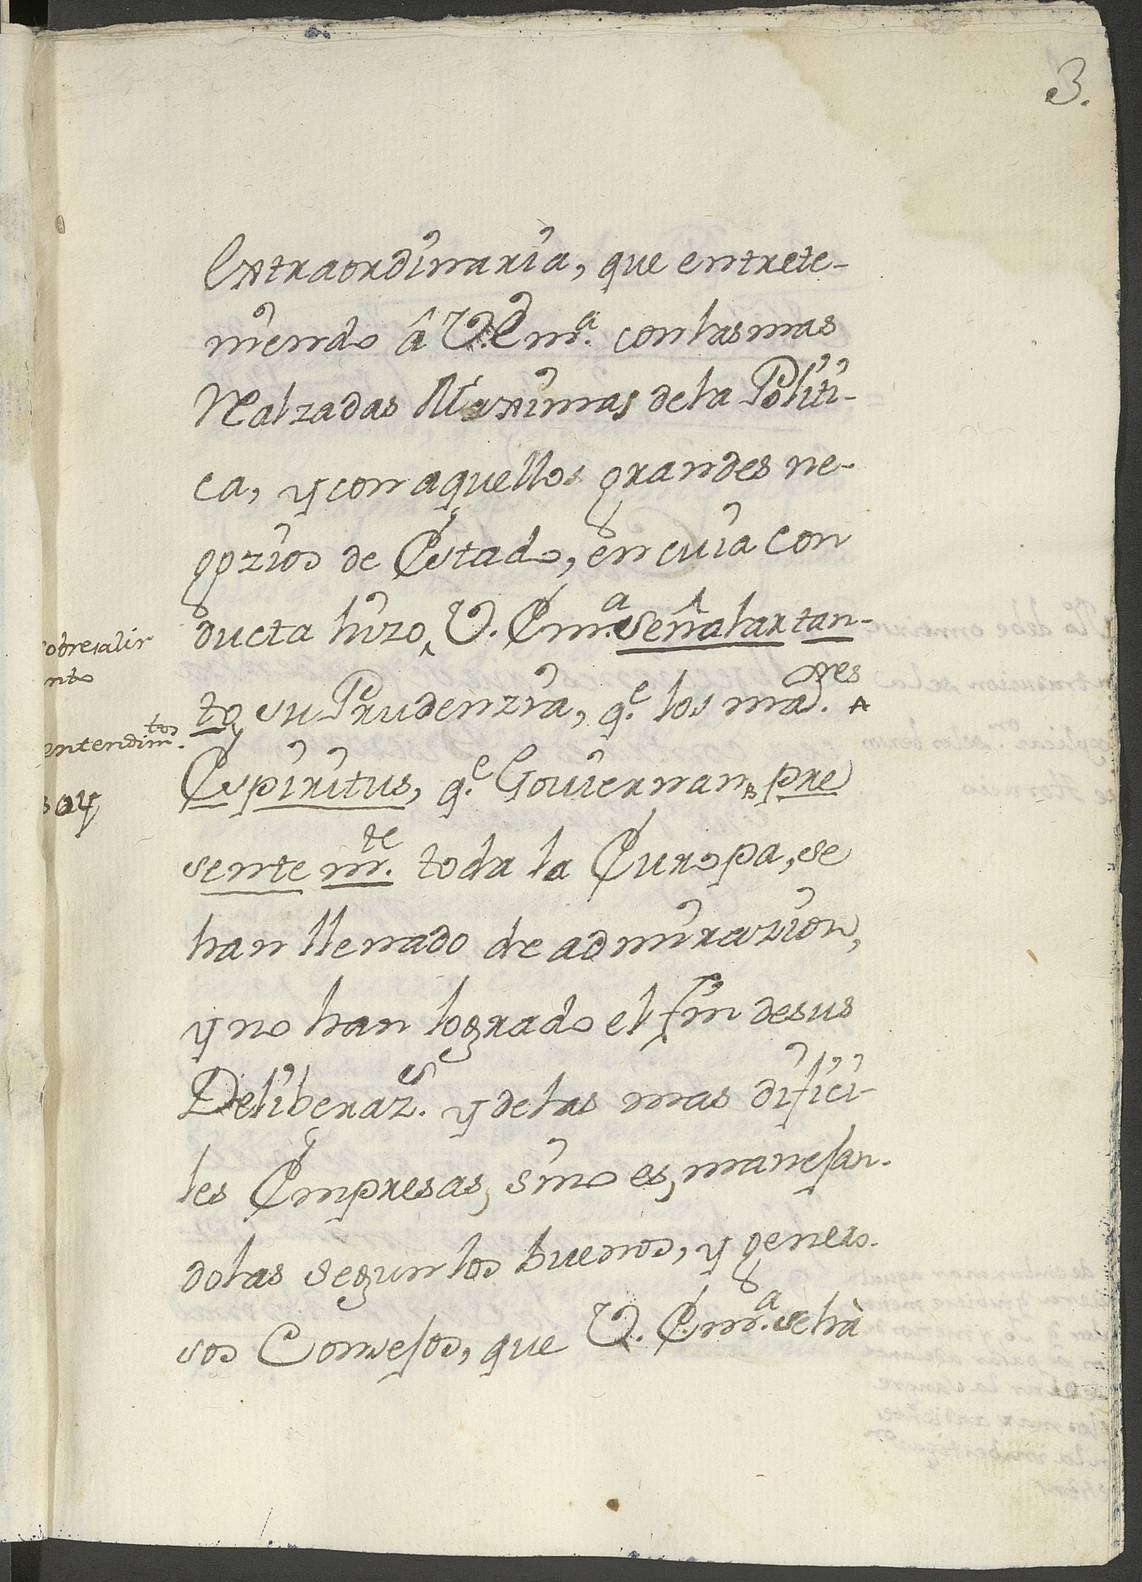 3.
Extraordinaria, que entrete-
niendo â V. Em.ª con las mas
Realzadas Maximas de la Politi-
ca, y con aquellos grandes ne-
gozios de Estado, en cuia con
ducta hizo V. Em.ª señalar tan-
to su Prudenzia, q.e los mad.res A
Espiritus, q.e Governan B pre
sente m.te toda la Europa, se
han llenado de admirazion,
y no han logrado el fin de sus
Deliberaz.s y de las mas difici-
les Empresas, sino es, manejan-
dolas segun los buenos, y genero-
sos Consejos, que V. Em.ª se hà
sobresalir
nto
entendim.tos
soy